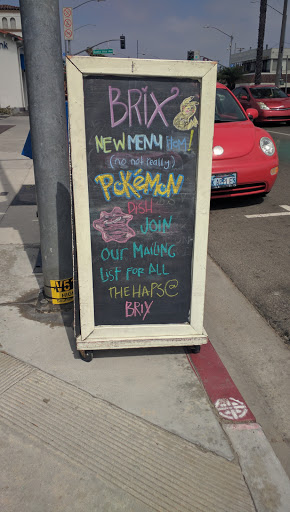 BRIX
NEW MENU ITEM!
(no not really)
POKéMON
DISH
JOIN
OUR MAILING
LIST FOR ALL
THE HAPS@
BRIX